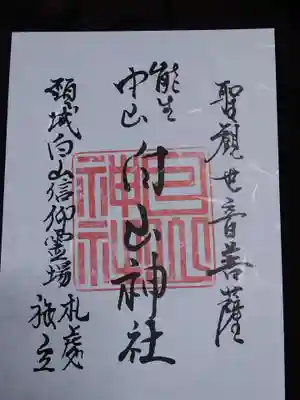 聖觀世音菩薩
能生
中山
白山神社
白山
神社
頸城白山信仰霊場
札處